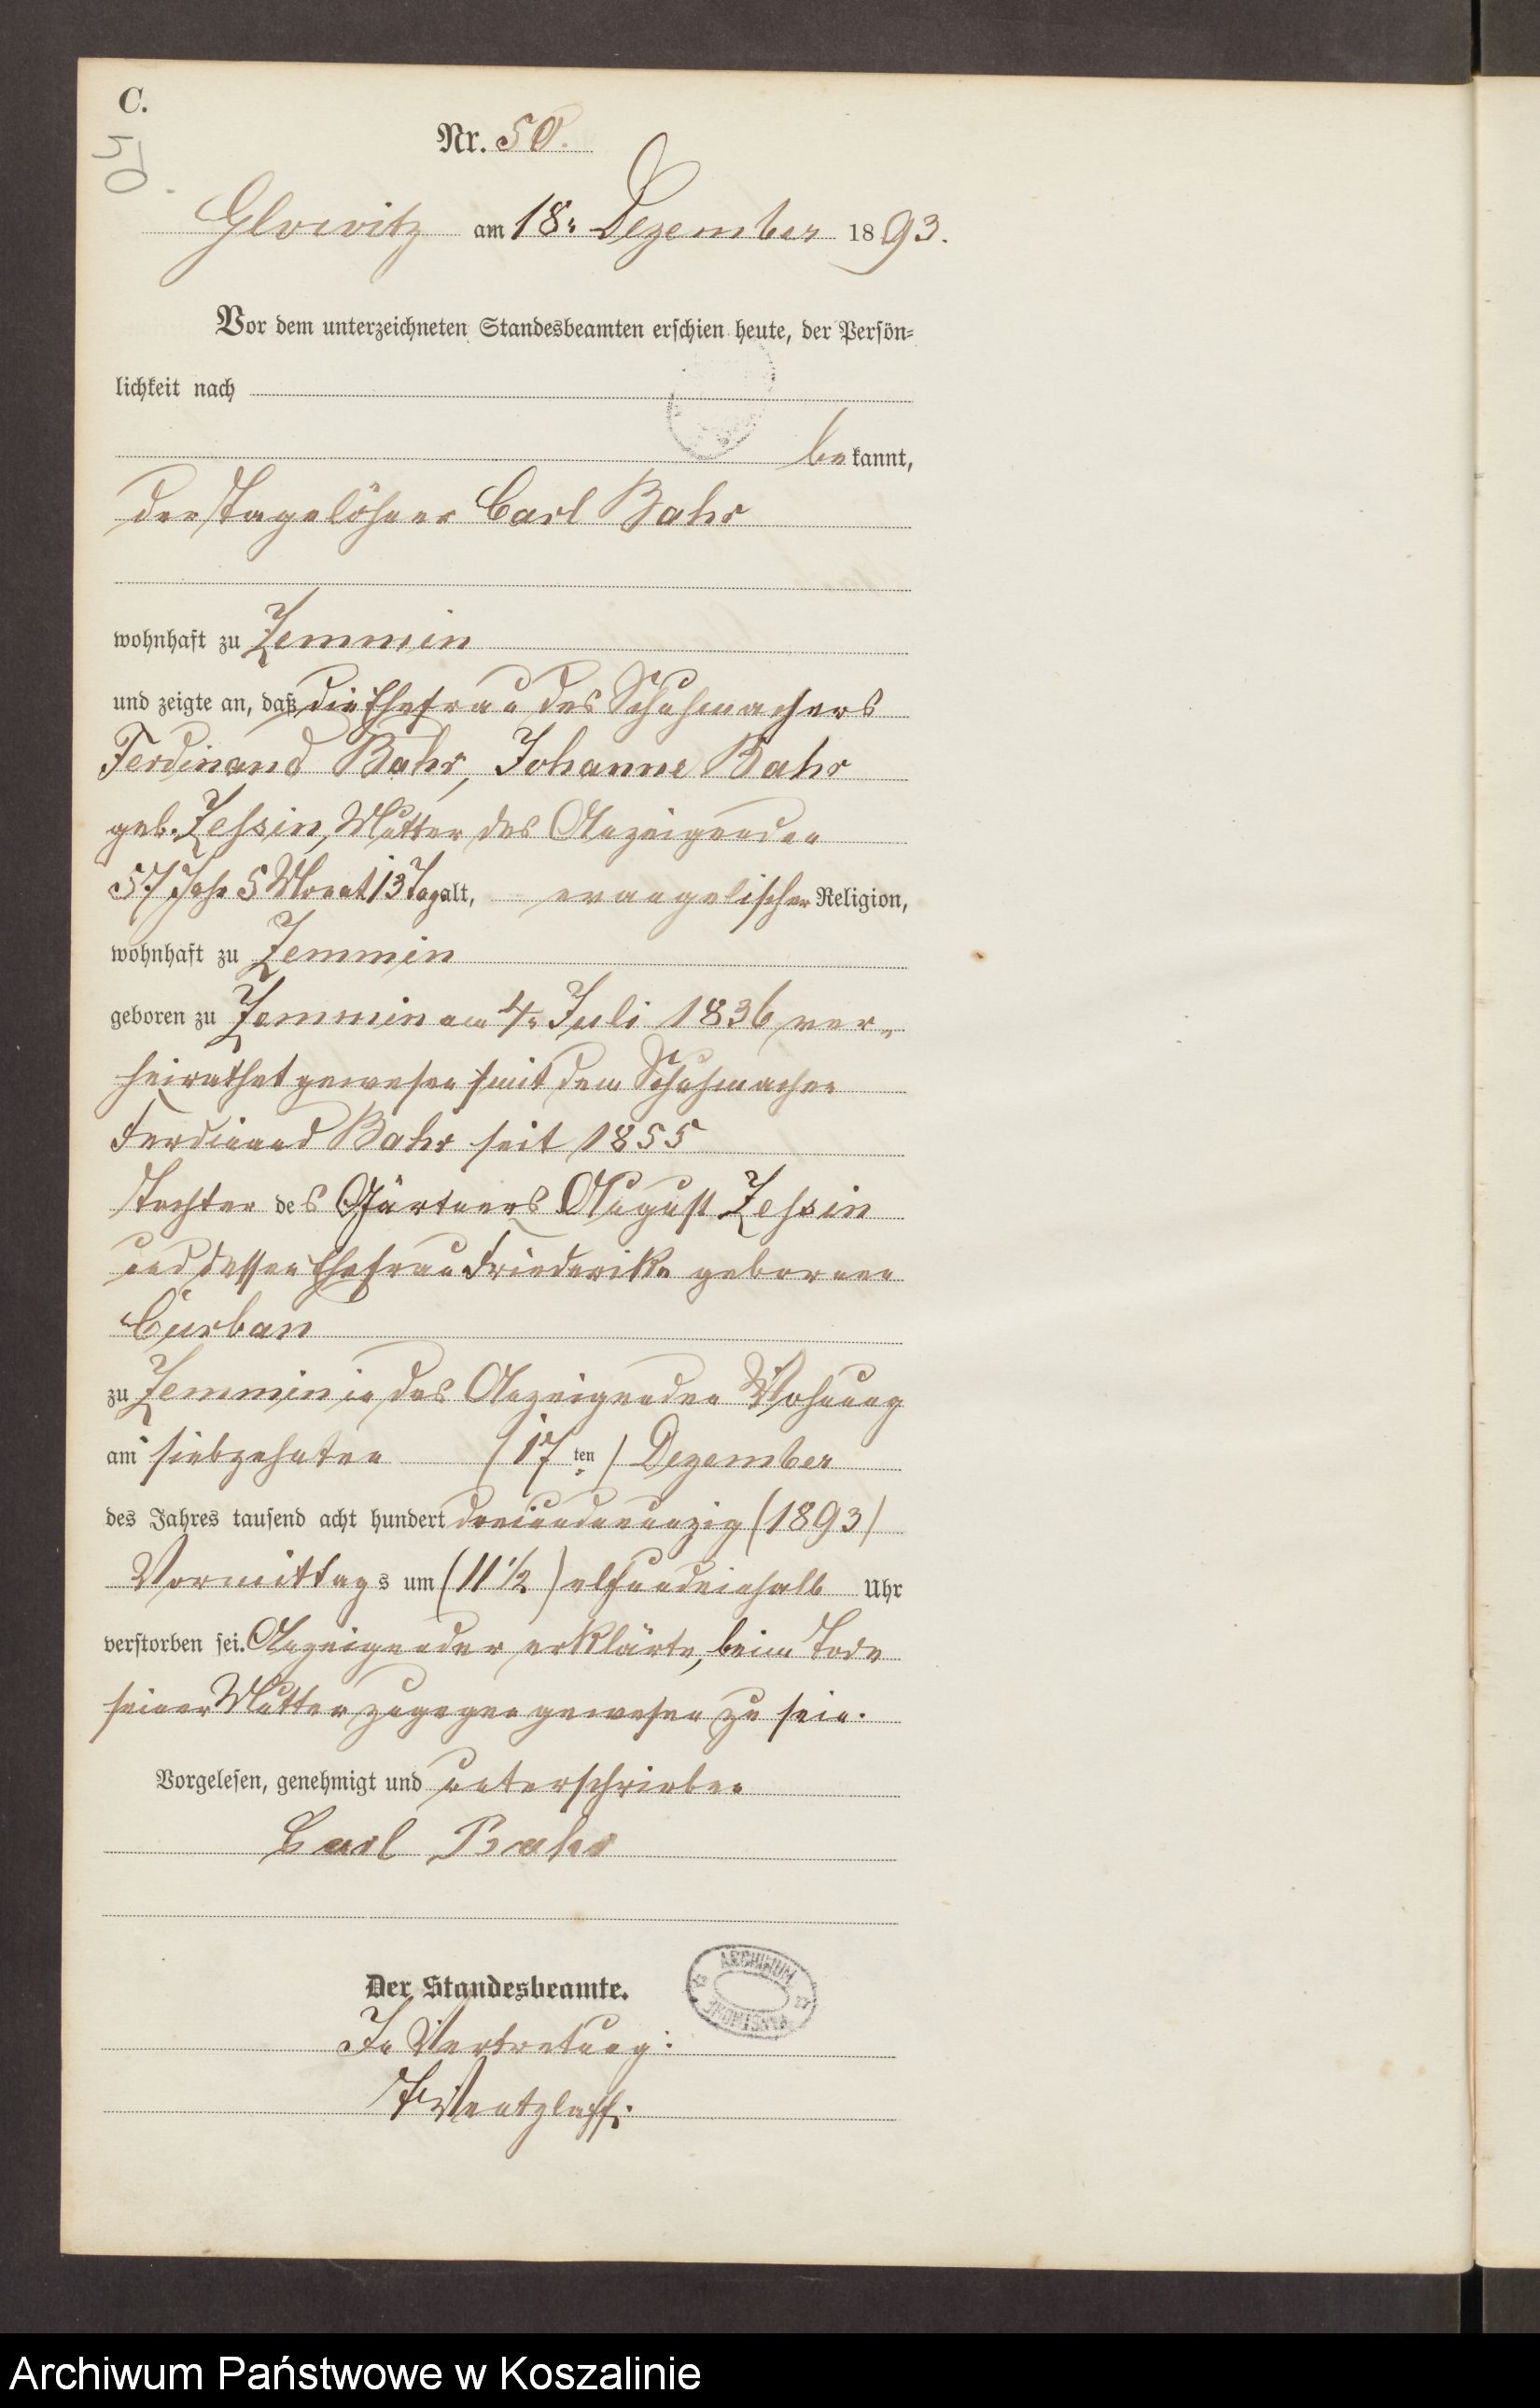 C.
50.
Nr. 50.
Glowitz am 18. Dezember 1893.
Vor dem unterzeichneten Standesbeamten erschien heute, der Persön-
lichkeit nach
bekannt,
der Tagelöhner Carl Bahr
wohnhaft zu Zemmin
und zeigte an, daß die Ehefrau des Schuhmachers
Ferdinand Bahr, Johanne Bahr
geb. Zessin, Mutter des Anzeigenden
57 Jahr 5 Monat 13 Tag alt, evangelischer Religion,
wohnhaft zu Zemmin
geboren zu Zemmin am 4. Juli 1836 ver-
heirathet gewesen mit dem Schuhmacher
Ferdinand Bahr seit 1855
Tochter des Gärtners August Zessin
und dessen Ehefrau Friederike geborenen
Curban
zu Zemmin in des Anzeigenden Wohnung
am siebzehnten (17ten) Dezember
des Jahres tausend acht hundert dreiundneunzig (1893)
Vormittags um (11 1/2) elfundeinhalb Uhr
verstorben sei. Anzeigender erklärte, beim Tode
seiner Mutter zugegen gewesen zu sein.
Vorgelesen, genehmigt und unterschrieben
Carl Bahr
Der Standesbeamte.
ARCHIWUM
In Vertretung:
Wentzlaff.
Archiwum Państwowe w Koszalinie